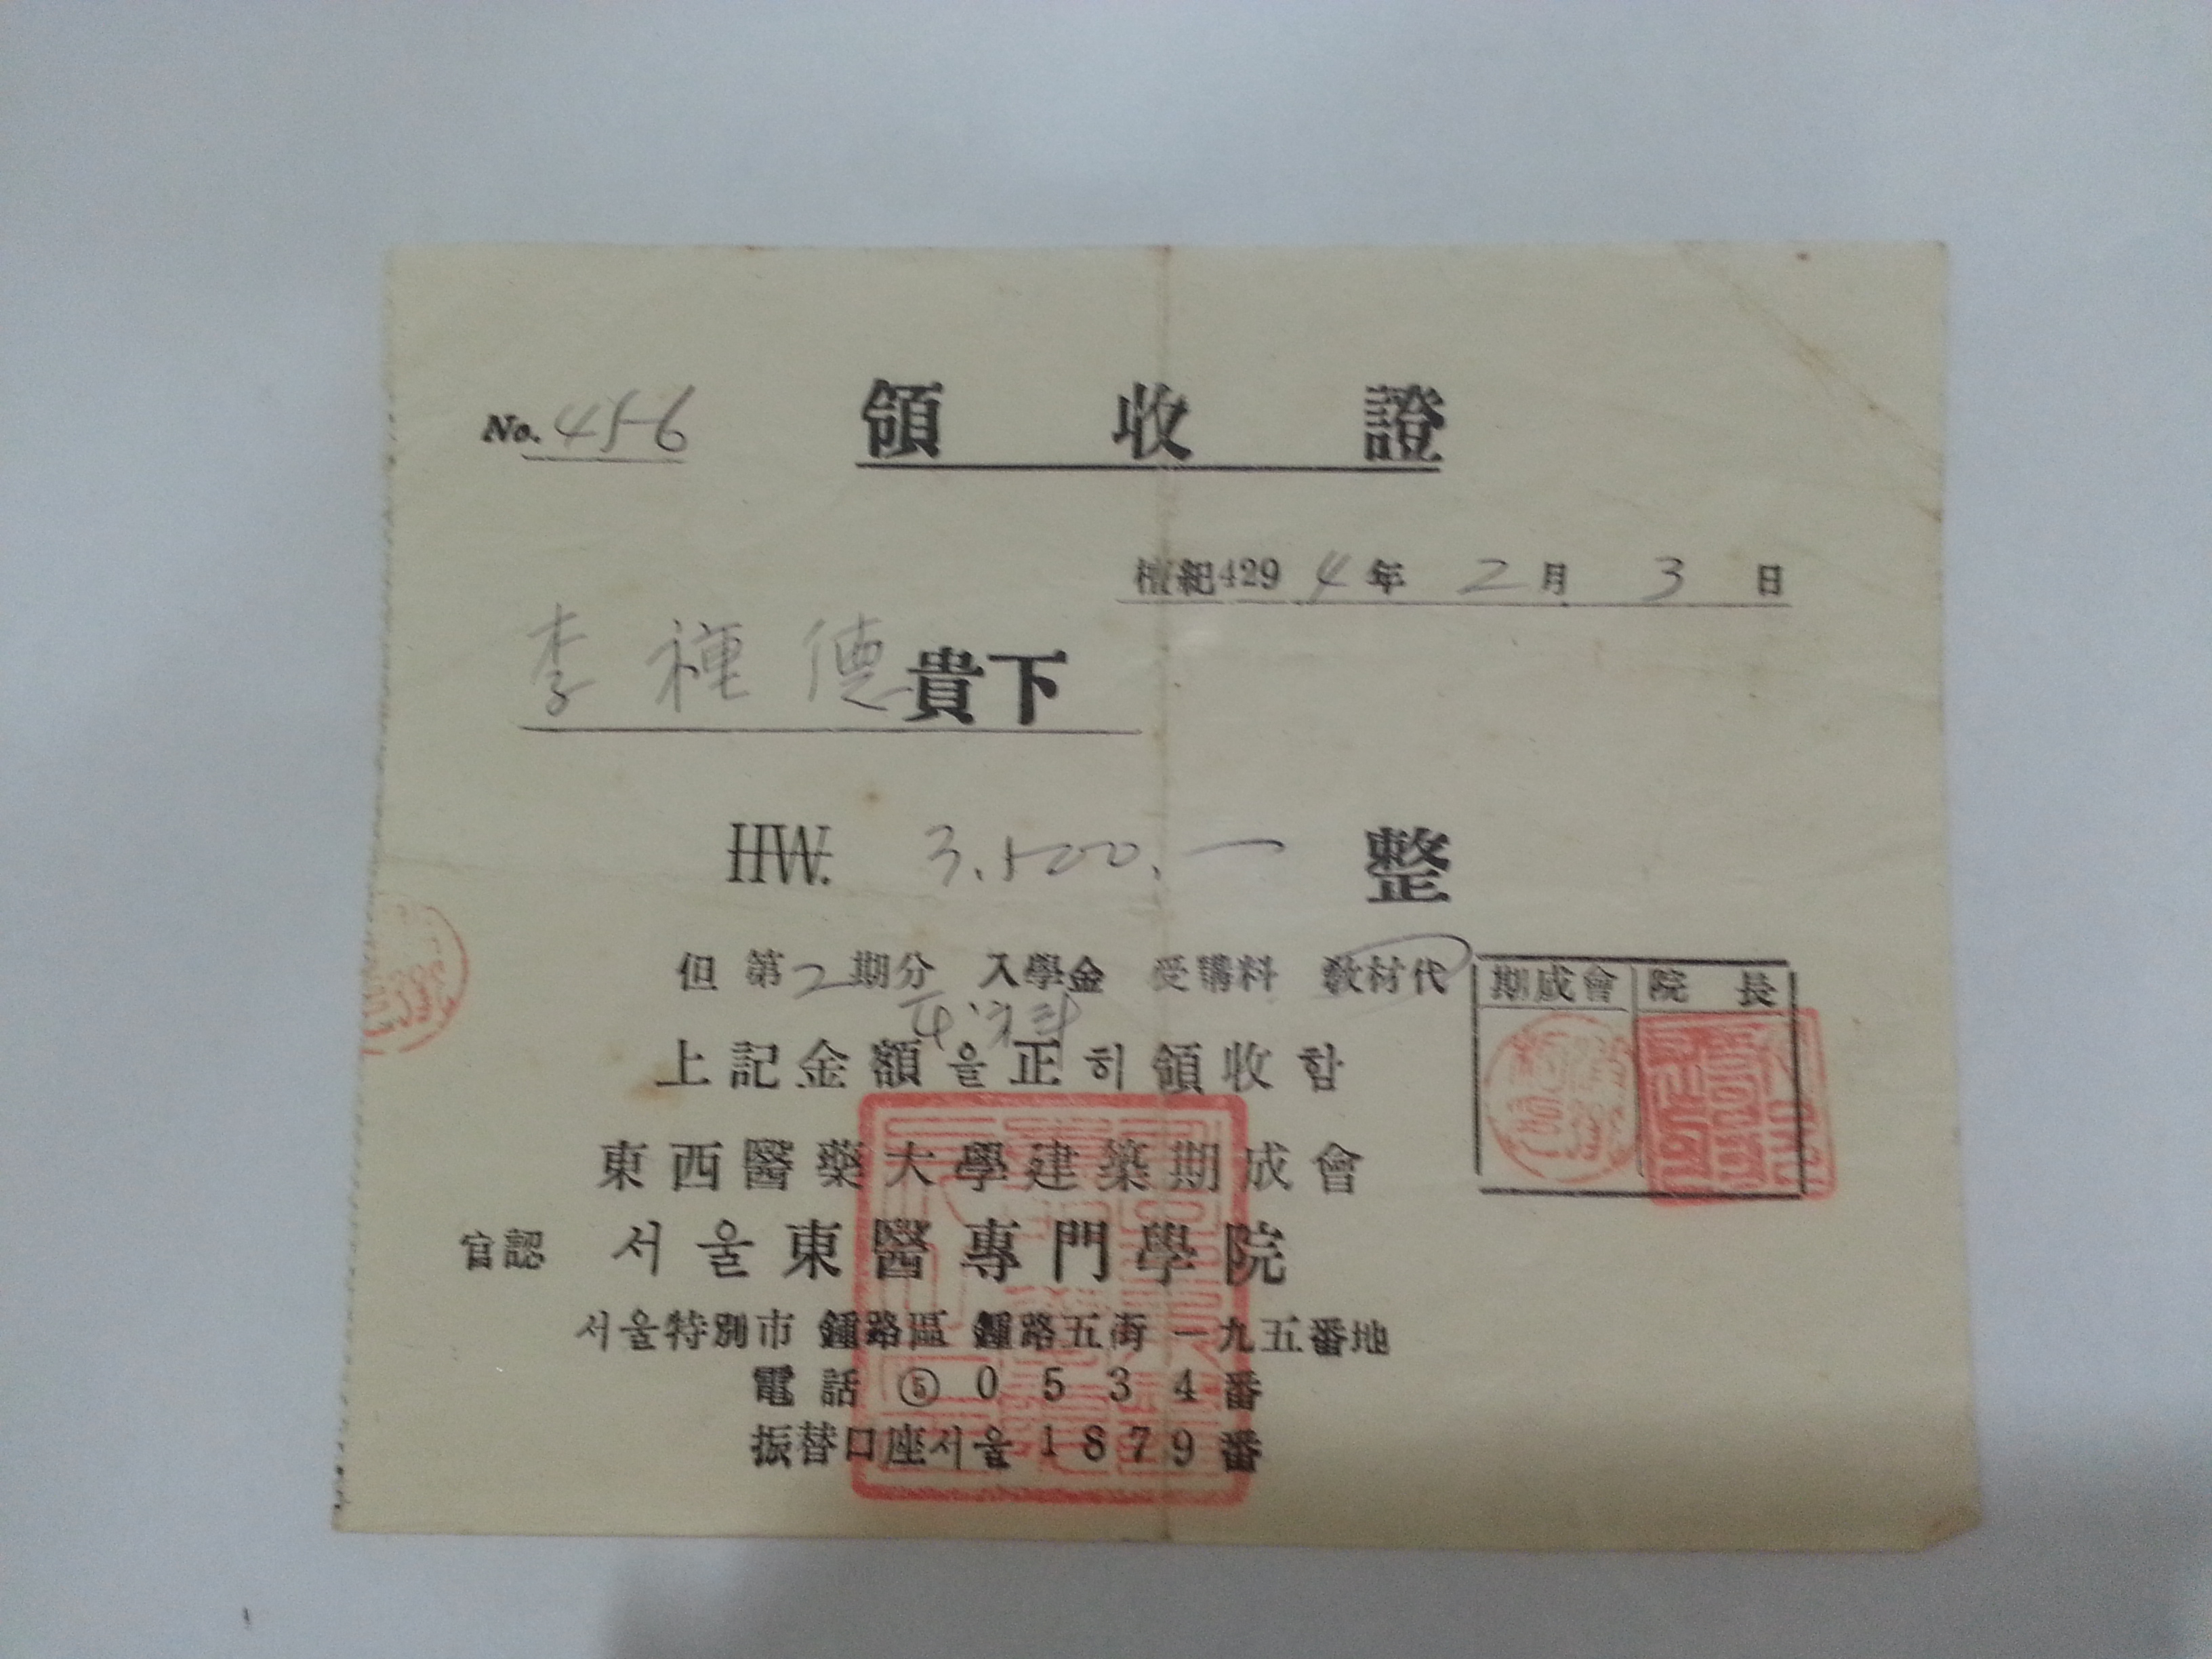 No. 456 領收證
檀紀4294年 2月 3日
李種德貴下
HW. 3.500.一 整
但 第2期分 入學金 受講料 敎材代
期成會 院長
上記金額을正히領收함
東西醫藥大學建築期成會
官認 서울東醫專門學院
서울特別市 鍾路區 鍾路五街 一九五番地
電話 ⑤ 0534番
振替口座서울1879番